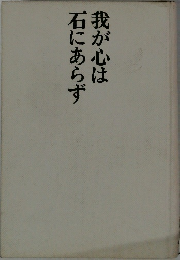 我が心は
石にあらず